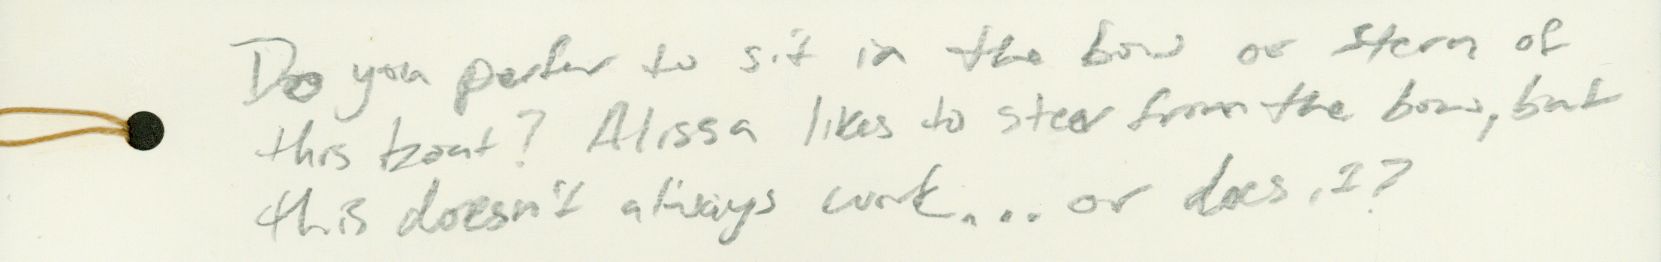 Do you perfer to sit in the bow or stern of
this boat? Alissa likes to steer from the bow, but
this doesn't always work.... or does it?